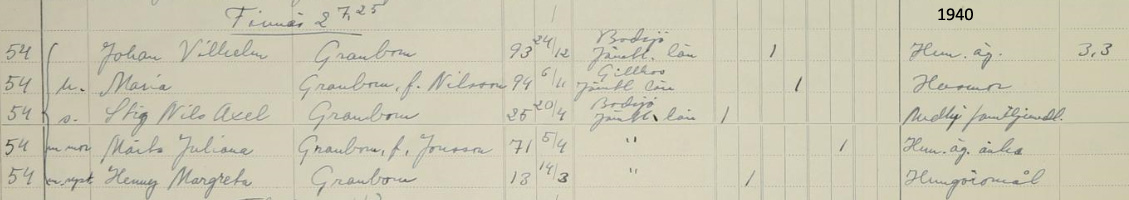 1940
Finnäs 2 7,25
54 Johan Vilhelm Granbom 93 24/12 Bodsjö Jämtl. län 1 Hem. äg. 3,3
54 h. Maria Granbom, f. Nilsson 94 6/11 Jämtl län 1 Husmor
54 s. Stig Nils Axel Granbom 25 20/4 Bodsjö Jämtl. län 1 Medhj familjemedl.
54 m mor Märta Juliana Granbom, f. Jonsson 71 5/4 " 1 Hem. äg. änka
54 Henny Margreta Granbom 13 14/3 " 1 Husgöromål